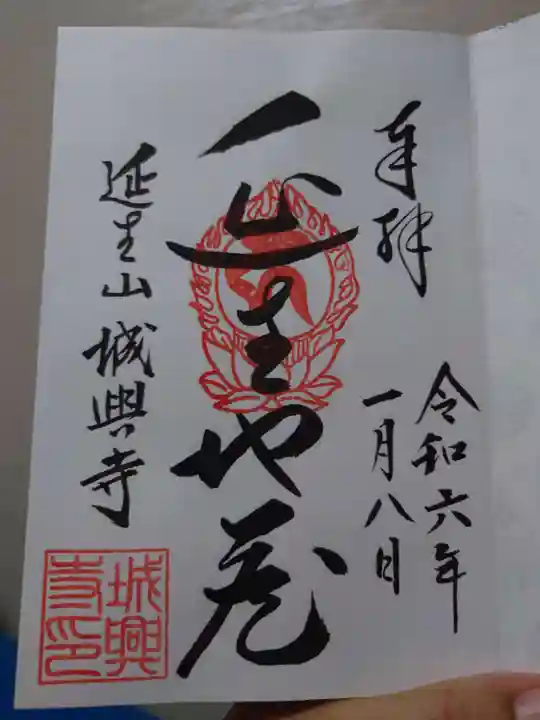 奉拝
令和六年
一月八日
延生地蔵
延生山城興寺
城興
寺印